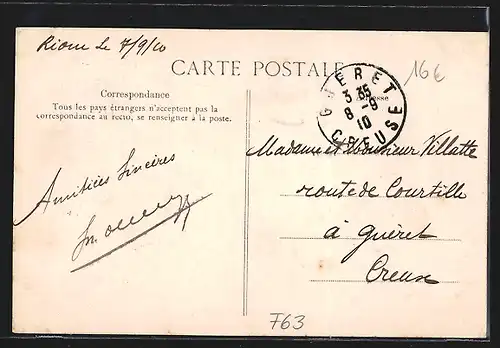 Riom le 7/9/10
CARTE POSTALE
16€
GUERET
3 35
8 -9
10
CREUSE
Correspondance
Tous les pays étrangers n'acceptent pas la
correspondance au recto, se renseigner à la poste.
Amitiées Sincères
Madame et Monsieur Villatte
route de Courtille
à Guéret
Creuse
F63